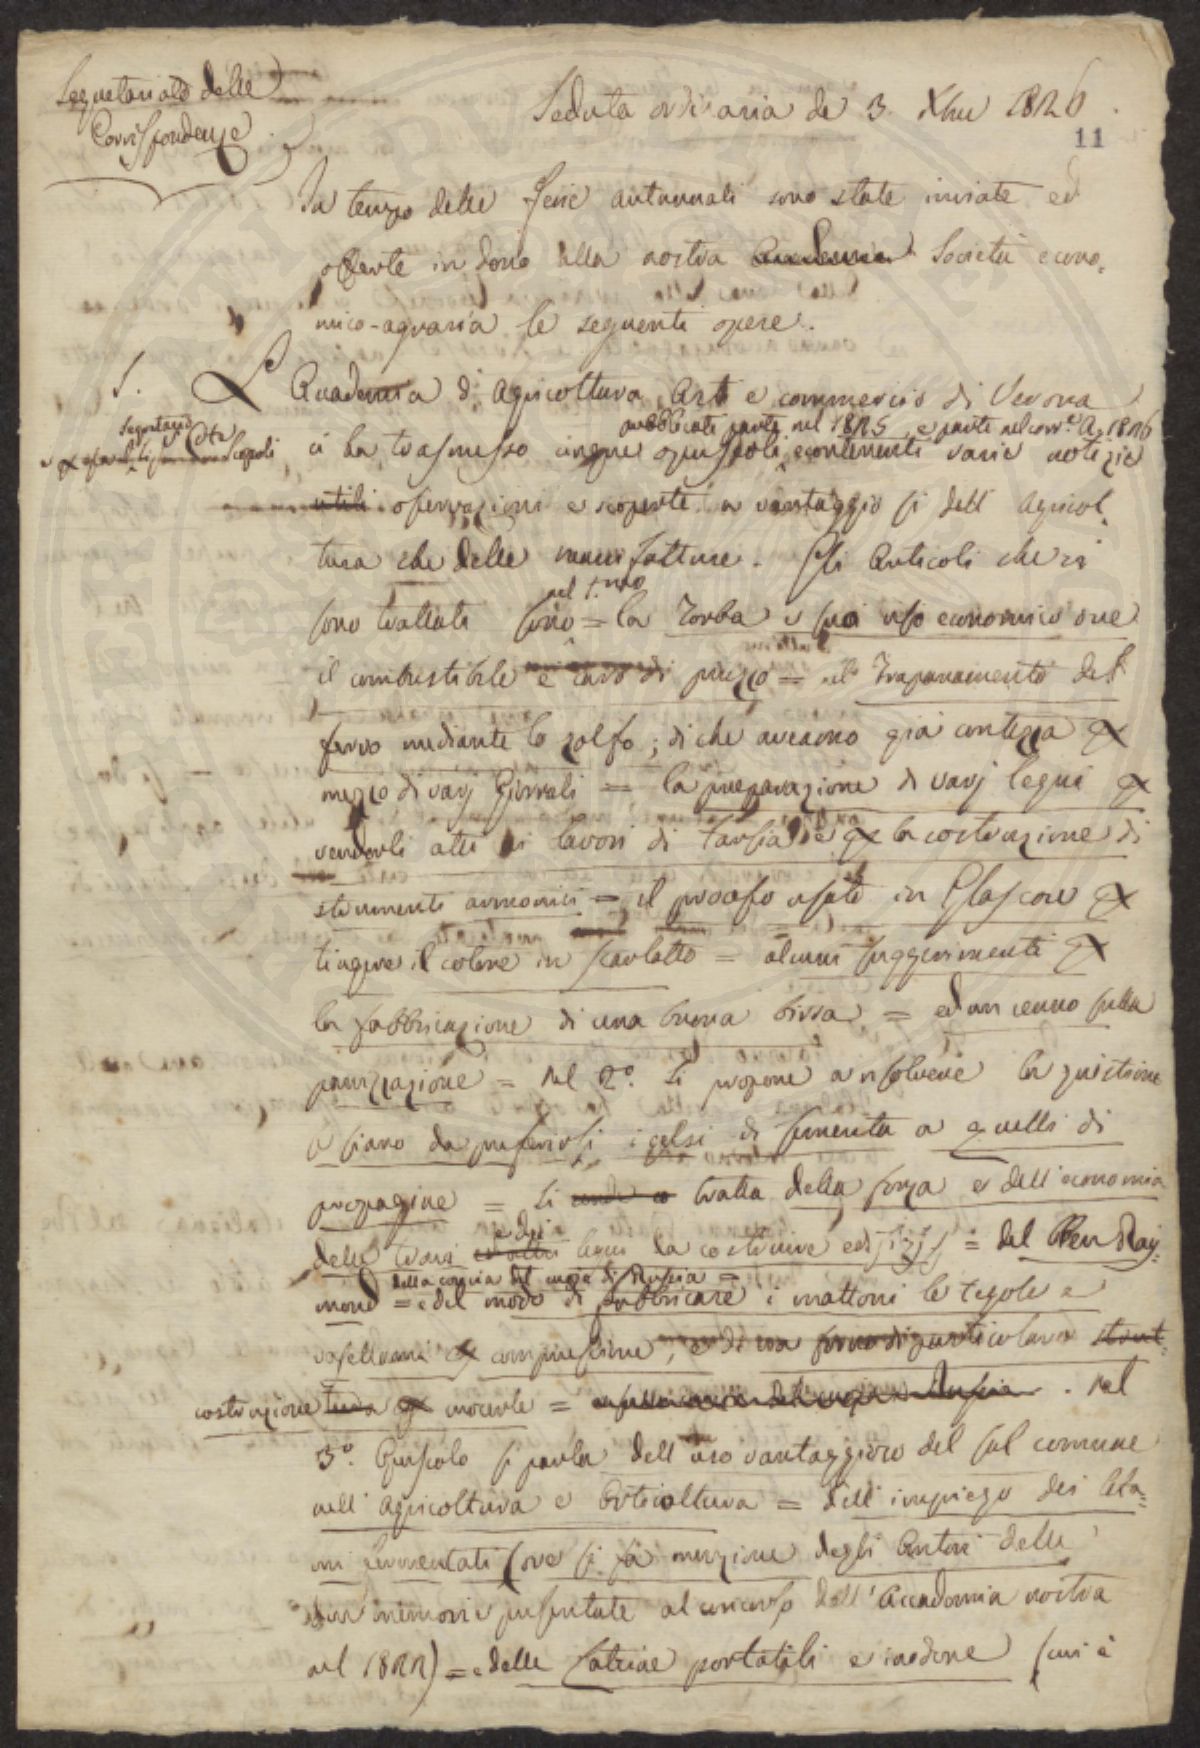 Segretariato delle
Corrispondenze
Seduta ordinaria de 3. Xbre 1826
11
In tempo delle ferie autunnali sono state inviate ed
offerte in dono alla nostra Accademia Società econo-
mico-agraria le seguenti opere.
1. L'Accademia d'Agricoltura, Arti e commercio di Verona
pubblicati parte nel 1825, e parte nel corr.e A. 1826
Segretario
Scopoli ci ha trasmesso cinque opuscoli, continenti varie notizie
utili osservazioni e scoperte a vantaggio sì dell' Agricol-
tura che delle manifatture. Gli Articoli che ci
nel 1.mo
sono trattati sono = la Torba e suo uso economico ove
il combustibile è caro di prezzo = il Trapanamento del
ferro mediante lo zolfo; di che avevamo già contezza per
mezzo di varj Giornali = la preparazione di varj legni per
renderli atti ai lavori di Tarsia, e per la costruzione di
strumenti armonici = il processo usato in Glascow per
tingere il cotone in scarlatto = alcuni suggerimenti per
la fabbricazione di una buona birra = ed un cenno sulla
panizzazione = Nel 2.o si propone a risolvere la quistione
se siano da preferirsi i gelsi di semenza a quelli di
propagine = si tratta della forza e dell'economia
e dei
delle travi ed altri legni da costruire edifizj = del Ben Ray-
della concia del cuojo di Russia =
mond = e del modo di fabbricare i mattoni le tegole e
vasellami per compressione, e di un forno di particolare strut-
costruzione tura per cuocerle = . Nel
3.o Opuscolo si parla dell'uso vantaggioso del sal comune
nell'Agricoltura e Orticoltura = dell'impiego dei leta-
mi fermentati (ove si fa menzione degli Autori delle
due memorie presentate al concorso dell'Accademia nostra
nel 1822) = e delle Latrine portatili e inodore (cui è